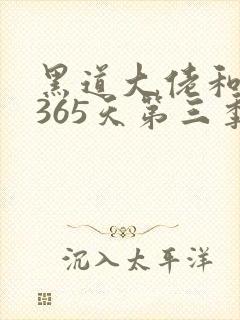 黑道大佬和
365天第三季
沉入太平洋